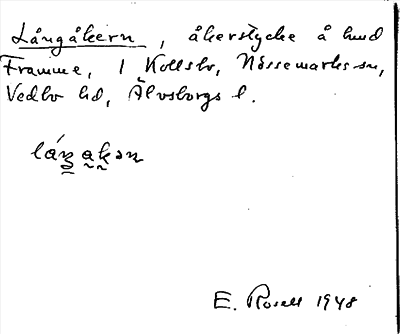 Långåkern, åkerstycke å hmd
Framme, 1 Kollsbo, Nössemarks sn,
Vedbo hd, Älvsborgs l.
E. Rosell 1948